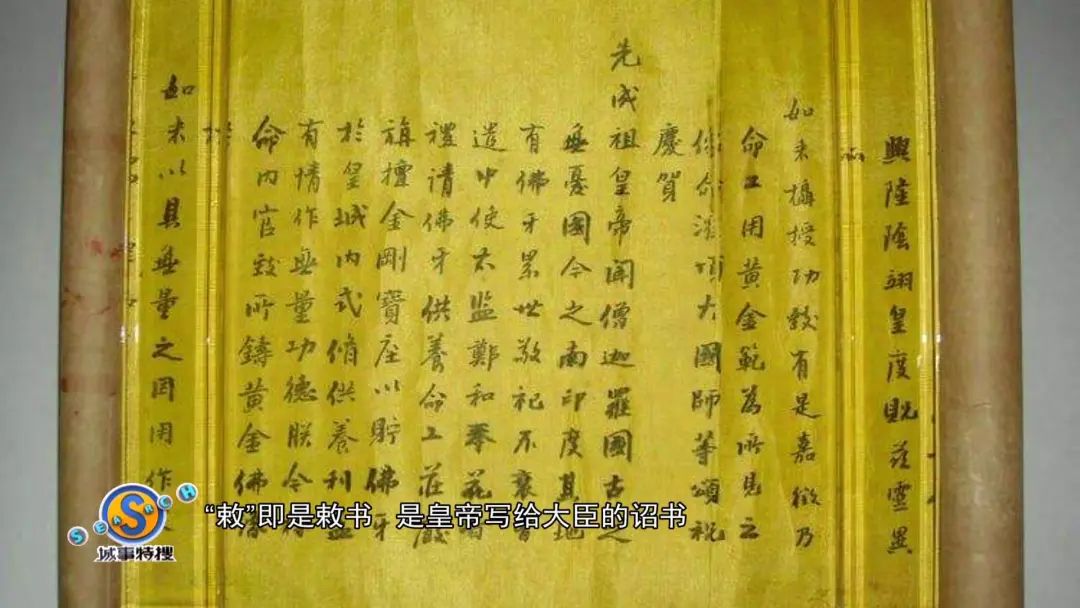 興隆陰翊皇度覩茲靈異
如来攝授功教有是嘉徵乃
命工用黄金範為所見之
像命灌頂大國師等頌祝
慶賀
先成祖皇帝聞僧迦羅國古之
無憂國今之南印度其地
有佛牙累世敬祀不衰
遣中使太監鄭和奉花
禮請佛牙供養命工莊嚴
旃檀金剛寶座以貯佛牙
於皇城内式脩供養利益
有情作無量功德朕今
命内官致所鑄黄金佛像
如来以具無量之因用作
“敕”即是敕书 是皇帝写给大臣的诏书
SEARCH
城事特搜